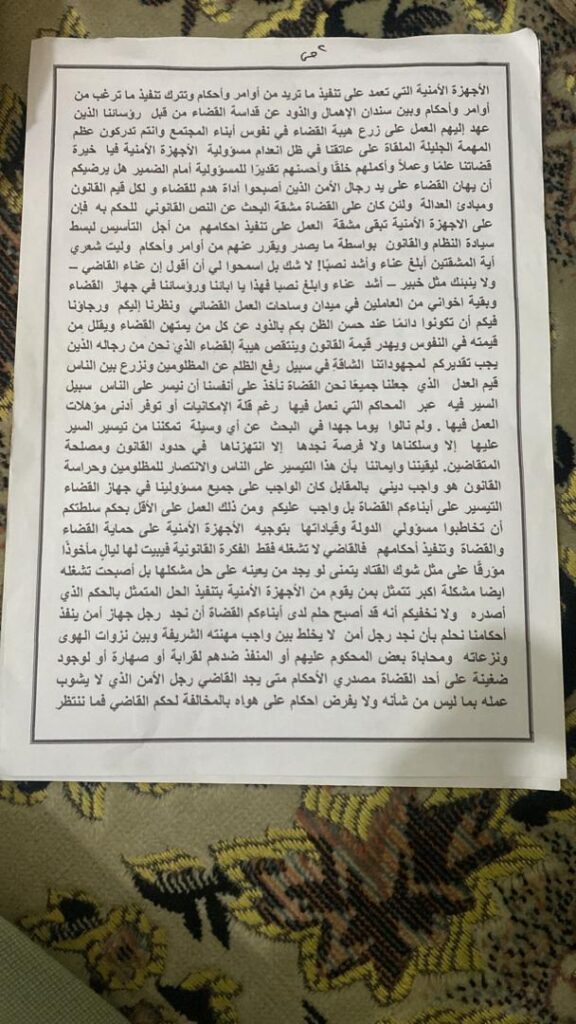 ص٢
الأجهزة الأمنية التي تعمد على تنفيذ ما تريد من أوامر وأحكام وتترك تنفيذ ما ترغب من
أوامر وأحكام وبين سندان الإهمال والذود عن قداسة القضاء من قبل رؤسائنا الذين
عهد إليهم العمل على زرع هيبة القضاء في نفوس أبناء المجتمع وانتم تدركون عظم
المهمة الجليلة الملقاة على عاتقنا في ظل انعدام مسؤولية الأجهزة الأمنية فيا خيرة
قضاتنا علمًا وعملاً وأكملهم خلقًا وأحسنهم تقديرًا للمسؤولية أمام الضمير هل يرضيكم
أن يهان القضاء على يد رجال الأمن الذين أصبحوا أداة هدم للقضاء و لكل قيم القانون
ومبادئ العدالة ولئن كان على القضاة مشقة البحث عن النص القانوني للحكم به فإن
على الاجهزة الأمنية تبقى مشقة العمل على تنفيذ احكامهم من أجل التأسيس لبسط
سيادة النظام والقانون بواسطة ما يصدر ويقرر عنهم من أوامر وأحكام وليت شعري
أية المشقتين أبلغ عناء وأشد نصبًا! لا شك بل اسمحوا لي أن أقول إن عناء القاضي –
ولا ينبئك مثل خبير – أشد عناء وابلغ نصبا فهذا يا اباننا ورؤسائنا في جهاز القضاء
وبقية اخواني من العاملين في ميدان وساحات العمل القضائي ونظرنا إليكم ورجاؤنا
فيكم أن تكونوا دائمًا عند حسن الظن بكم بالذود عن كل من يمتهن القضاء ويقلل من
قيمته في النفوس ويهدر قيمة القانون وينتقص هيبة القضاء الذي نحن من رجاله الذين
يجب تقديركم لمجهوداتنا الشاقة في سبيل رفع الظلم عن المظلومين ونزرع بين الناس
قيم العدل الذي جعلنا جميعًا نحن القضاة نأخذ على أنفسنا أن نيسر على الناس سبيل
السير فيه عبر المحاكم التي نعمل فيها رغم قلة الإمكانيات أو توفر أدنى مؤهلات
العمل فيها . ولم نالوا يوما جهدا في البحث عن أي وسيلة تمكننا من تيسير السير
عليها إلا وسلكناها ولا فرصة نجدها إلا انتهزناها في حدود القانون ومصلحة
المتقاضين. ليقيننا وايماننا بأن هذا التيسير على الناس والانتصار للمظلومين وحراسة
القانون هو واجب ديني بالمقابل كان الواجب على جميع مسؤولينا في جهاز القضاء
التيسير على أبناءكم القضاة بل واجب عليكم ومن ذلك العمل على الأقل بحكم سلطتكم
أن تخاطبوا مسؤولي الدولة وقياداتها بتوجيه الأجهزة الأمنية على حماية القضاء
والقضاة وتنفيذ أحكامهم فالقاضي لا تشغله فقط الفكرة القانونية فيبيت لها ليالٍ مأخوذًا
مؤرقًا على مثل شوك القتاد يتمنى لو يجد من يعينه على حل مشكلها بل أصبحت تشغله
ايضا مشكلة اكبر تتمثل بمن يقوم من الأجهزة الأمنية بتنفيذ الحل المتمثل بالحكم الذي
أصدره ولا نخفيكم أنه قد أصبح حلم لدى أبناءكم القضاة أن نجد رجل جهاز أمن ينفذ
أحكامنا نحلم بأن نجد رجل أمن لا يخلط بين واجب مهنته الشريفة وبين نزوات الهوى
ونزعاته ومحاباة بعض المحكوم عليهم أو المنفذ ضدهم لقرابة أو صهارة أو لوجود
ضغينة على أحد القضاة مصدري الأحكام متى يجد القاضي رجل الأمن الذي لا يشوب
عمله بما ليس من شأنه ولا يفرض احكام على هواه بالمخالفة لحكم القاضي فما ننتظر